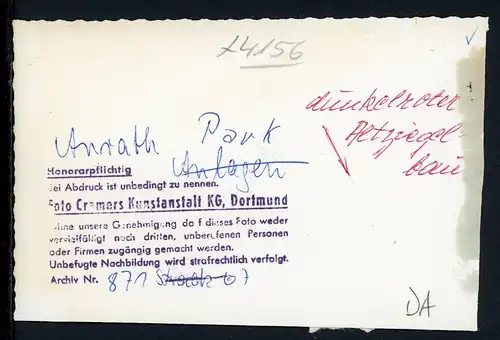 +4156
dunkelroter
Altziegel-
bau
Anrath Park
Anlagen
Honorarpflichtig
Bei Abdruck ist unbedingt zu nennen.
Foto Cramers Kunstanstalt KG, Dortmund
Ohne unsere Genehmigung darf dieses Foto weder
vervielfältigt noch dritten, unberufenen Personen
oder Firmen zugängig gemacht werden.
Unbefugte Nachbildung wird strafrechtlich verfolgt.
Archiv Nr. 871 67
DA